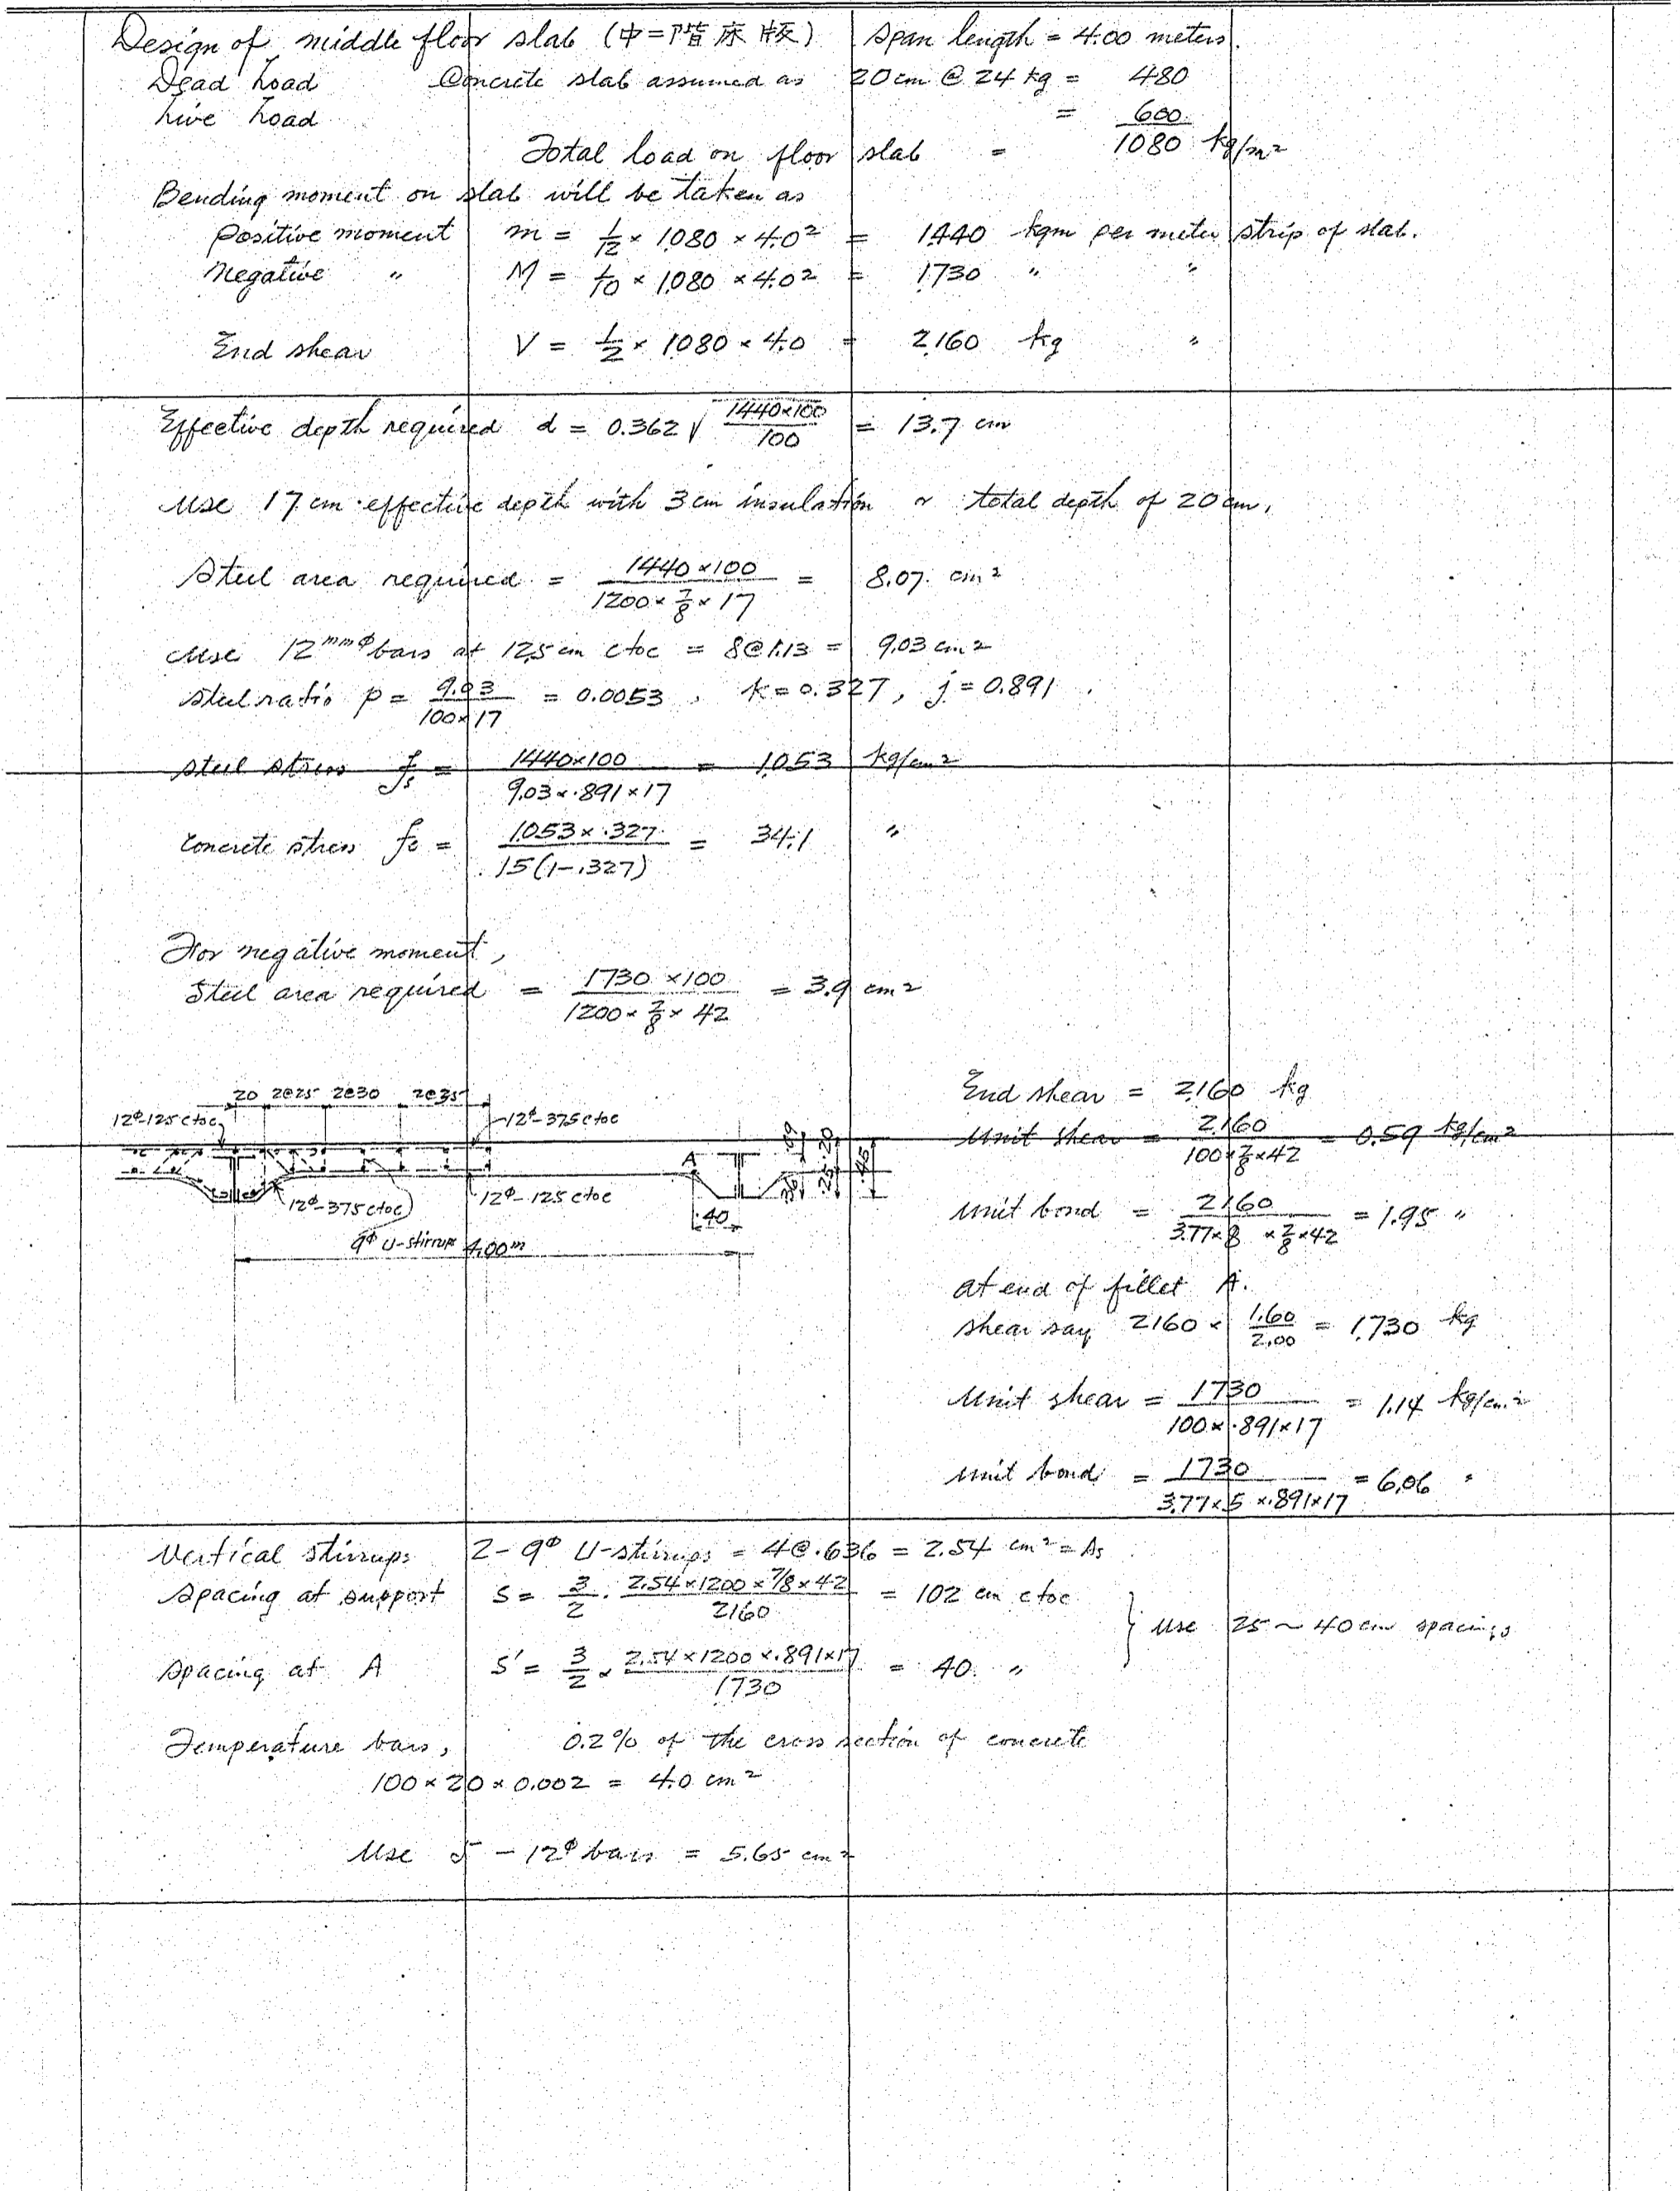 Design of middle floor slab (中二階床版) Span length = 4.00 meters.
Dead Load Concrete slab assumed as 20cm @ 24 kg = 480
Live Load = 600
Total load on floor slab = 1080 kg/m²
Bending moment on slab will be taken as
Positive moment m = 1/12 × 1080 × 4.0² = 1440 kgm per meter strip of slab.
Negative " M = 1/10 × 1080 × 4.0² = 1730 " "
End shear V = 1/2 × 1080 × 4.0 = 2160 kg "
Effective depth required d = 0.362 √ 1440×100 / 100 = 13.7 cm
Use 17 cm effective depth with 3 cm insulation or total depth of 20 cm.
Steel area required = 1440×100 / 1200 × 7/8 × 17 = 8.07 cm²
Use 12mmφ bars at 12.5 cm ctoc = 8@1.13 = 9.03 cm²
Steel ratio p = 9.03 / 100×17 = 0.0053, k = 0.327, j = 0.891.
Steel stress fs = 1440×100 / 9.03×.891×17 = 1053 kg/cm²
Concrete stress fc = 1053×.327 / 15(1-.327) = 34.1 "
For negative moment,
Steel area required = 1730×100 / 1200 × 7/8 × 42 = 3.9 cm²
20 2@25 2@30 2@35
12φ-125 ctoc 12φ-375 ctoc
A
12φ-375 ctoc 12φ-125 ctoc
.40
9φ U-stirrup 4.00m
End shear = 2160 kg
Unit shear = 2160 / 100×7/8×42 = 0.59 kg/cm²
Unit bond = 2160 / 3.77×8 ×7/8×42 = 1.95 "
at end of fillet A.
Shear say 2160 × 1.60/2.00 = 1730 kg
Unit shear = 1730 / 100×.891×17 = 1.14 kg/cm²
Unit bond = 1730 / 3.77×5 ×.891×17 = 6.06 "
Vertical stirrups 2-9φ U-stirrups = 4@.636 = 2.54 cm² = As
Spacing at support S = 3/2 · 2.54×1200×7/8×42 / 2160 = 102 cm ctoc
Use 25 ~ 40 cm spacings
Spacing at A S' = 3/2 × 2.54×1200×.891×17 / 1730 = 40. "
Temperature bars, 0.2% of the cross section of concrete
100×20×0.002 = 4.0 cm²
Use 5 - 12φ bars = 5.65 cm²